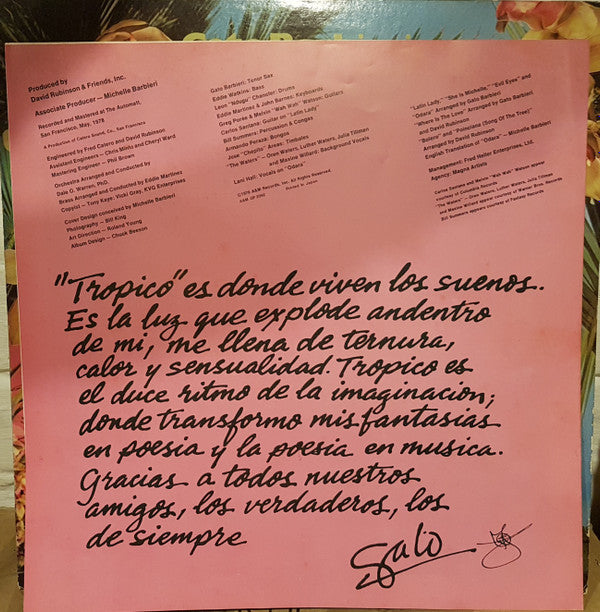 Produced by
David Rubinson & Friends, Inc.
Associate Producer — Michelle Barbieri
Recorded and Mastered at The Automatt,
San Francisco, May, 1978
A Production of Catero Sound, Co., San Francisco
Engineered by Fred Catero and David Rubinson
Assistant Engineers — Chris Minto and Cheryl Ward
Mastering Engineer — Phil Brown
Orchestra Arranged and Conducted by
Dale O. Warren, PhD.
Brass Arranged and Conducted by Eddie Martinez
Copyist — Tony Kaye; Vicki Gray, KVG Enterprises
Cover Design conceived by Michelle Barbieri
Photography — Bill King
Art Direction — Roland Young
Album Design — Chuck Beeson
Gato Barbieri: Tenor Sax
Eddie Watkins: Bass
Leon "Ndugu" Chancler: Drums
Eddie Martinez & John Barnes: Keyboards
Greg Porée & Melvin "Wah Wah" Watson: Guitars
Carlos Santana: Guitar on "Latin Lady"
Bill Summers: Percussion & Congas
Armando Peraza: Bongos
José "Chepitó" Areas: Timbales
"The Waters" — Oren Waters, Luther Waters, Julia Tillman
and Maxine Willard: Background Vocals
Lani Hall: Vocals on "Odara"
©1978 A&M Records, Inc. All Rights Reserved.
Printed in
"Latin Lady," "She is Michelle," "Evil Eyes" and
"Odara" Arranged by Gato Barbieri
"Where Is The Love" Arranged by Gato Barbieri
and David Rubinson
"Bolero" and "Poinciana (Song Of The Tree)"
Arranged by David Rubinson
English Translation of "Odara" — Michelle Barbieri
Management: Fred Heller Enterprises, Ltd.
Agency: Magna Artists
Carlos Santana and Melvin "Wah Wah" Watson appear
courtesy of Columbia Records
"The Waters" — Oren Waters, Luther Waters, Julia Tillman
and Maxine Willard appear courtesy of Warner Bros. Records
Bill Summers appears courtesy of Fantasy Records
"Tropico" es donde viven los suenos.
Es la luz que explode andentro
de mi, me llena de ternura,
calor y sensualidad. Tropico es
el duce ritmo de la imaginacion;
donde transformo mis fantasias
en poesia y la poesia en musica.
Gracias a todos nuestros
amigos, los verdaderos, los
de siempre
Gato